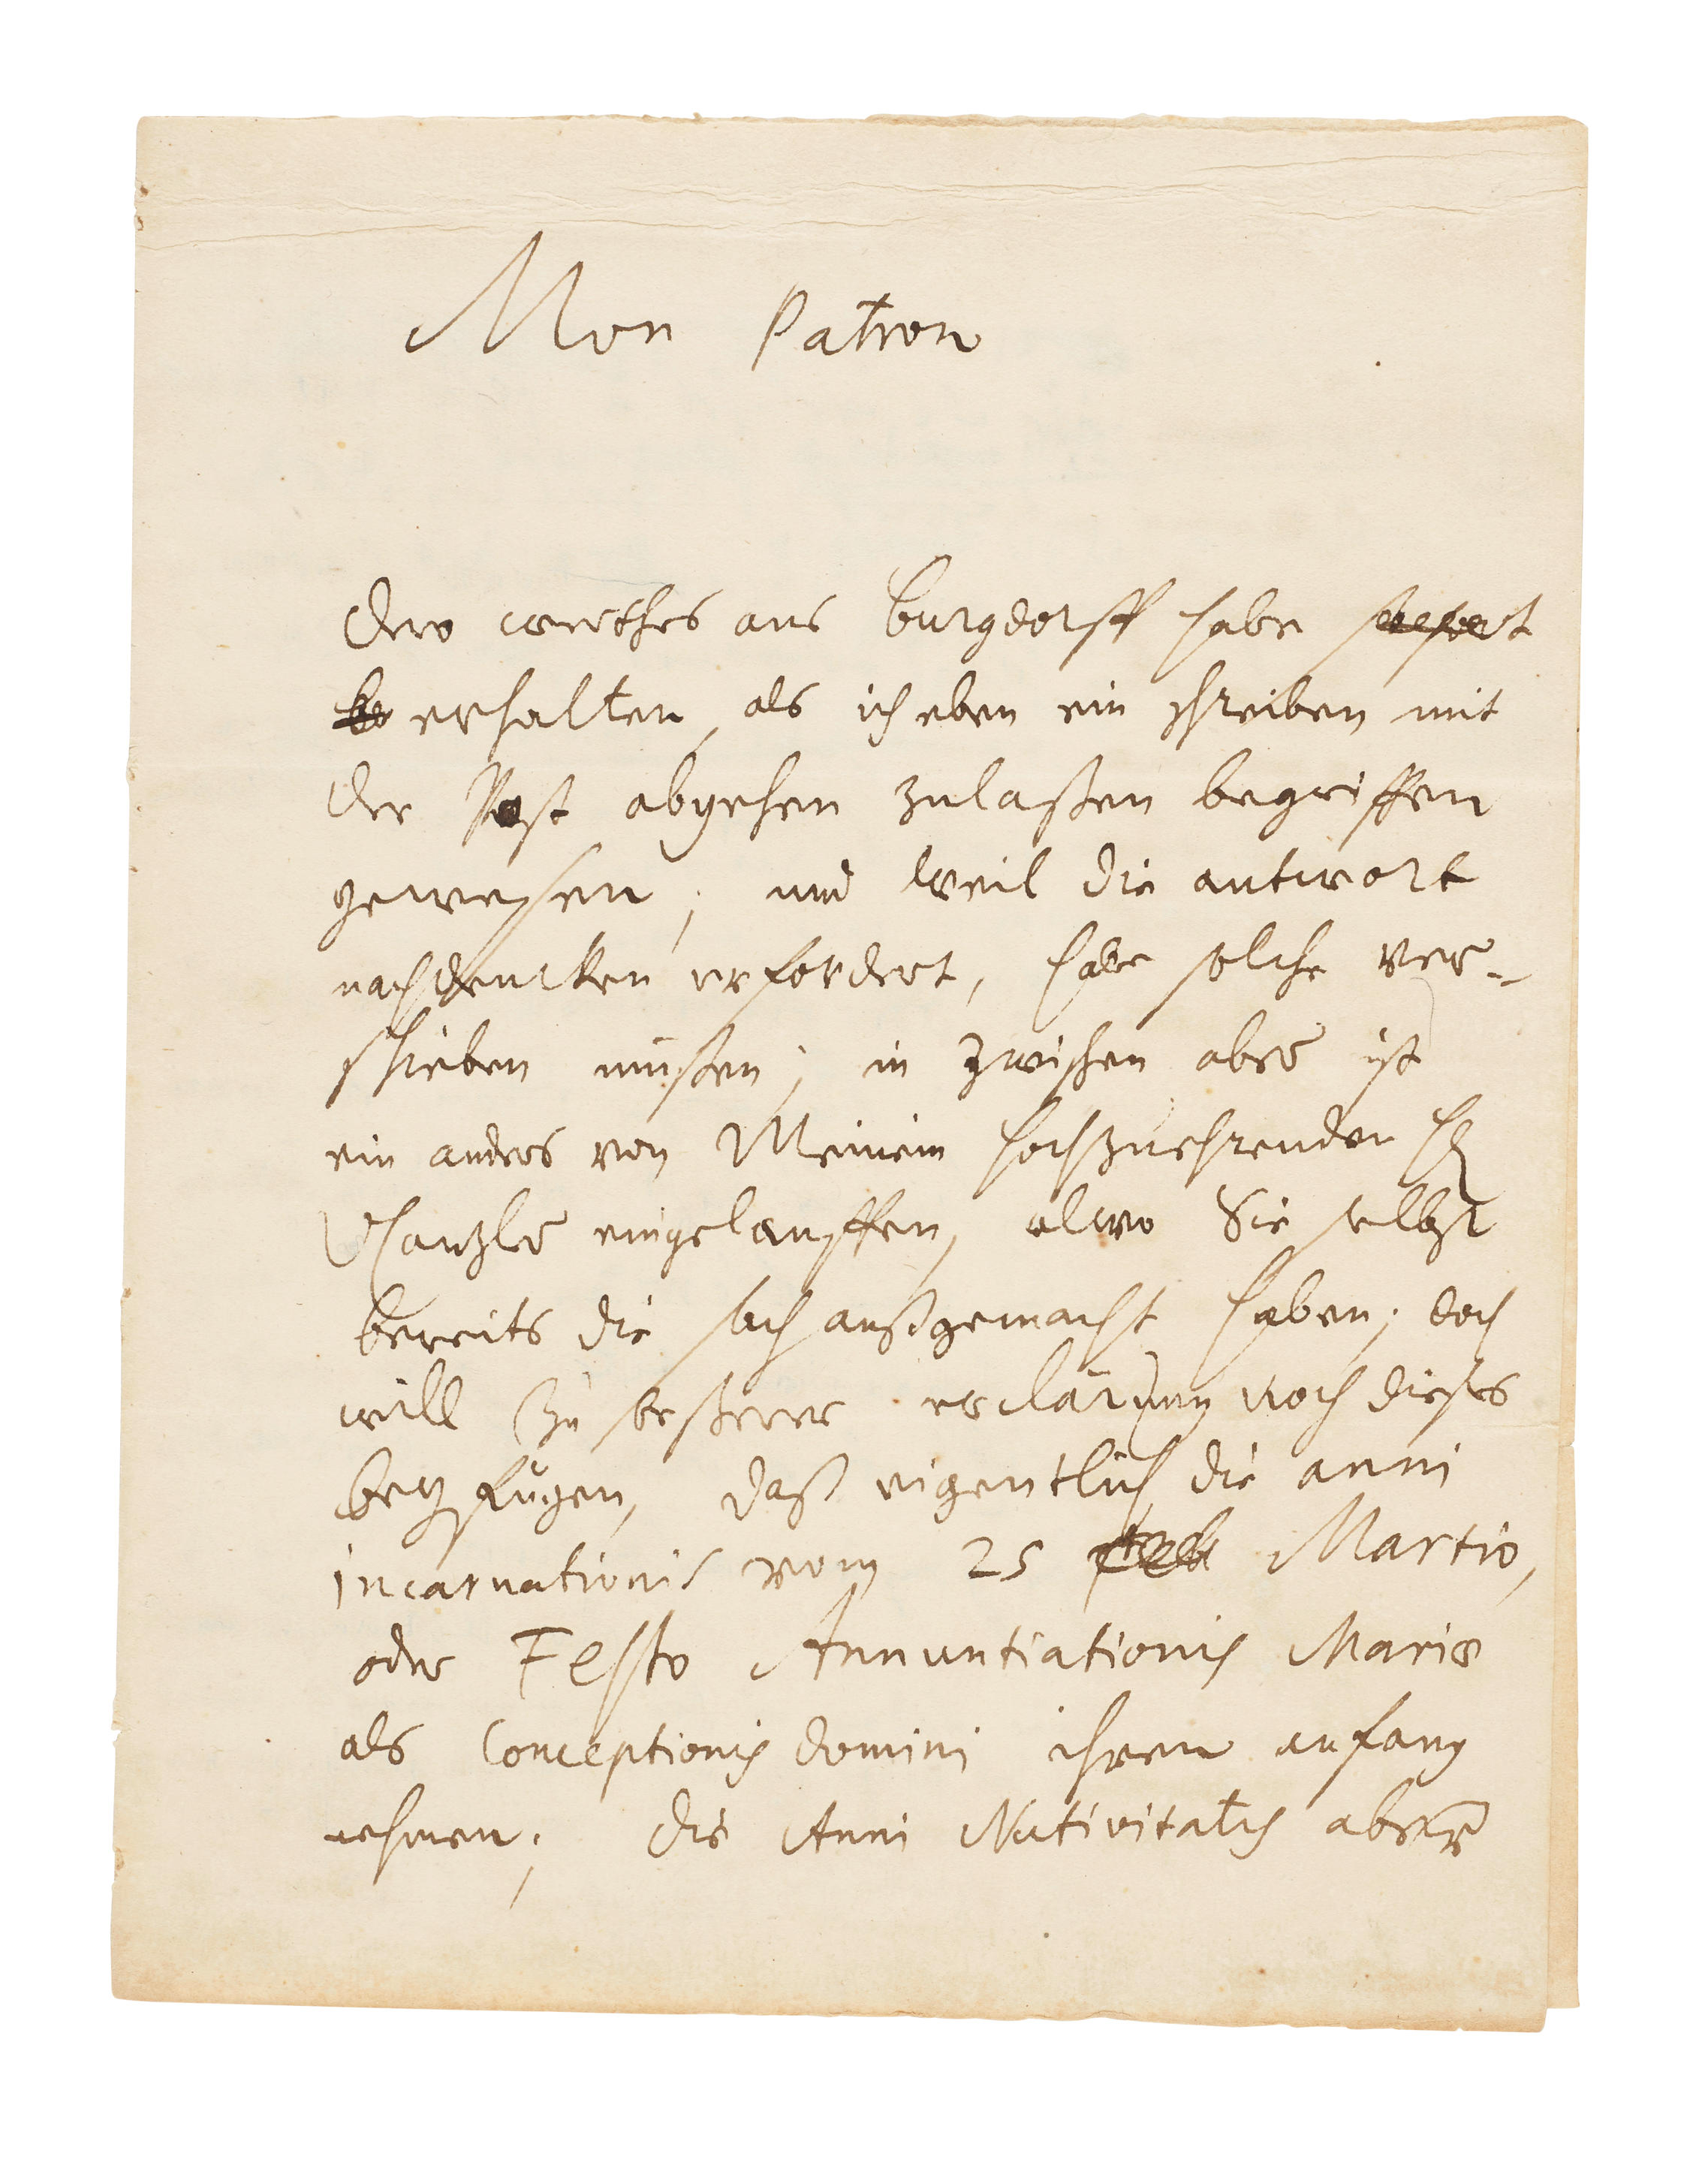 Mon Patron
Dero werthes aus Burgdorff habe
erhalten, als ich eben ein schreiben mit
der Post abgehen zulaßen begriffen
gewesen; und weil die antwort
nachdencken erfordert, habe solche ver-
schieben müßen; in zwischen aber ist
ein anders von Meinem hochzuehrenden H
Canzler eingelauffen, alwo Sie selbst
bereits die sach außgemacht haben; doch
will zu beßerer erclärung noch dieses
beyfügen, daß eigentlich die anni
incarnationis vom 25 Martio,
oder Festo Annuntiationis Mariæ
als Conceptionis domini ihren anfang
nehmen; die Anni Nativitatis aber